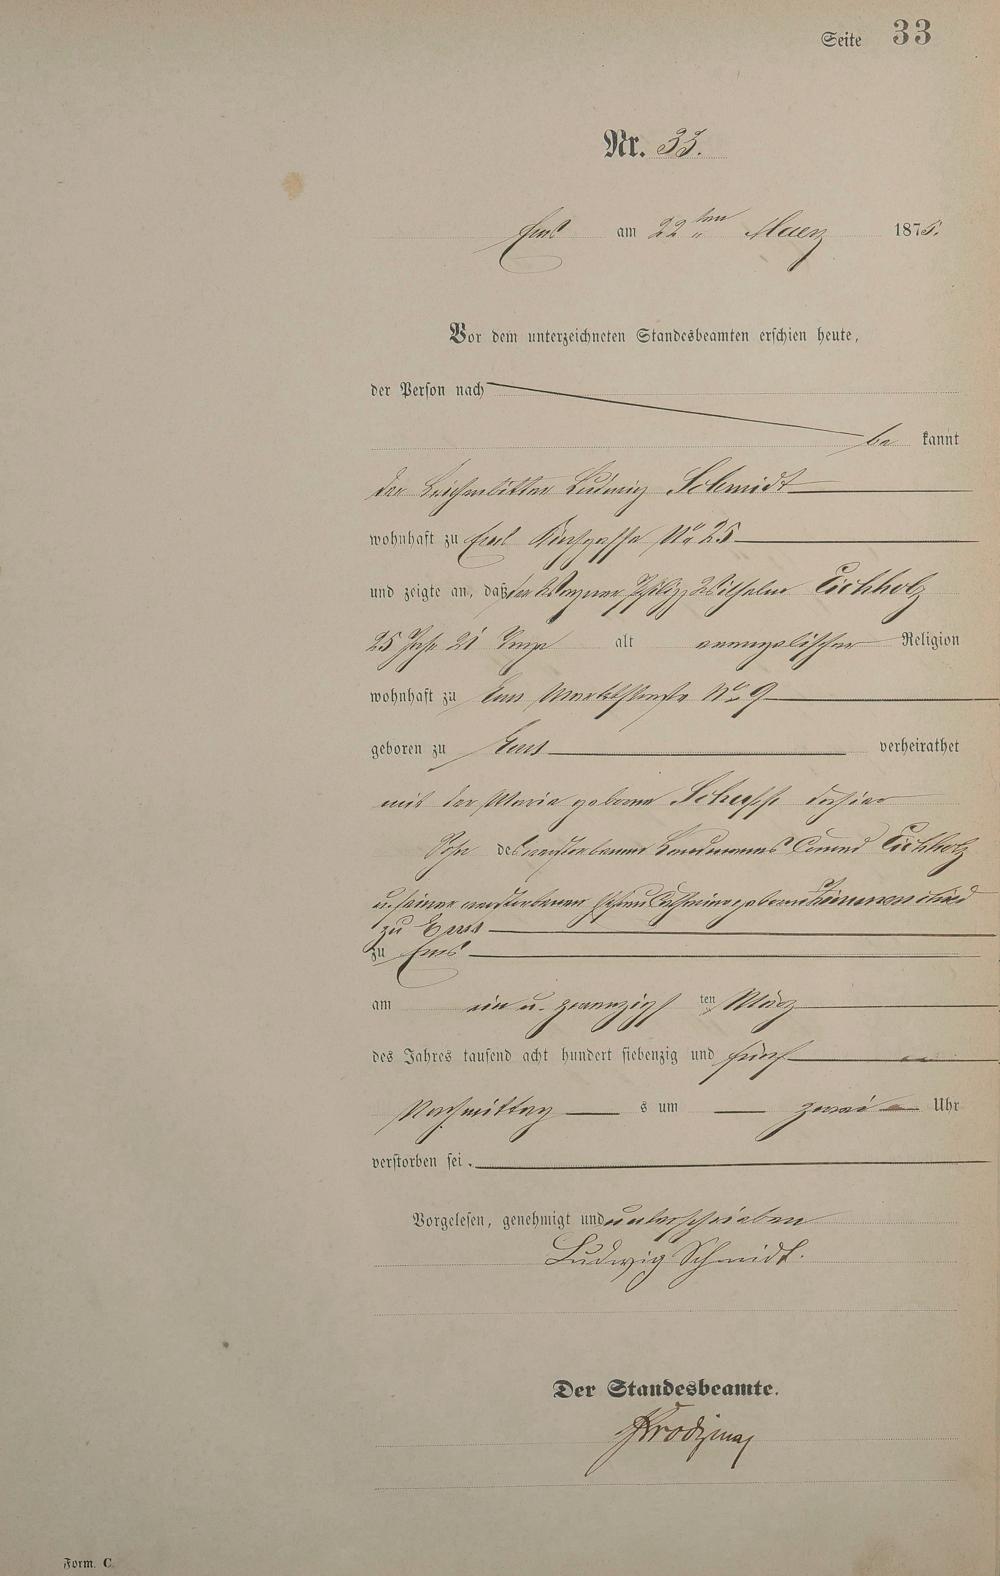 Seite 33
Nr. 33.
Ems am 22ten Maerz 1875.
Vor dem unterzeichneten Standesbeamten erschien heute,
der Person nach
be kannt
der Leichenbitter Ludwig Schmidt
wohnhaft zu Ems No 25
und zeigte an, daß der Philipp Wilhelm Eichholz
25 Jahr 21 Tage alt evangelischer Religion
wohnhaft zu Ems Marktstraße No 9
geboren zu Ems verheirathet
mit der Maria geborne
Sohn des verstorbenen Conrad Eichholz
u. seiner verstorbenen Ehefrau geborne
zu Ems
zu Ems
am ein u. zwanzigs ten März
des Jahres tausend acht hundert siebenzig und fünf
Nachmittag s um zwei Uhr
verstorben sei.
Vorgelesen, genehmigt und unterschrieben
Ludwig Schmidt.
Der Standesbeamte.
Form. C.